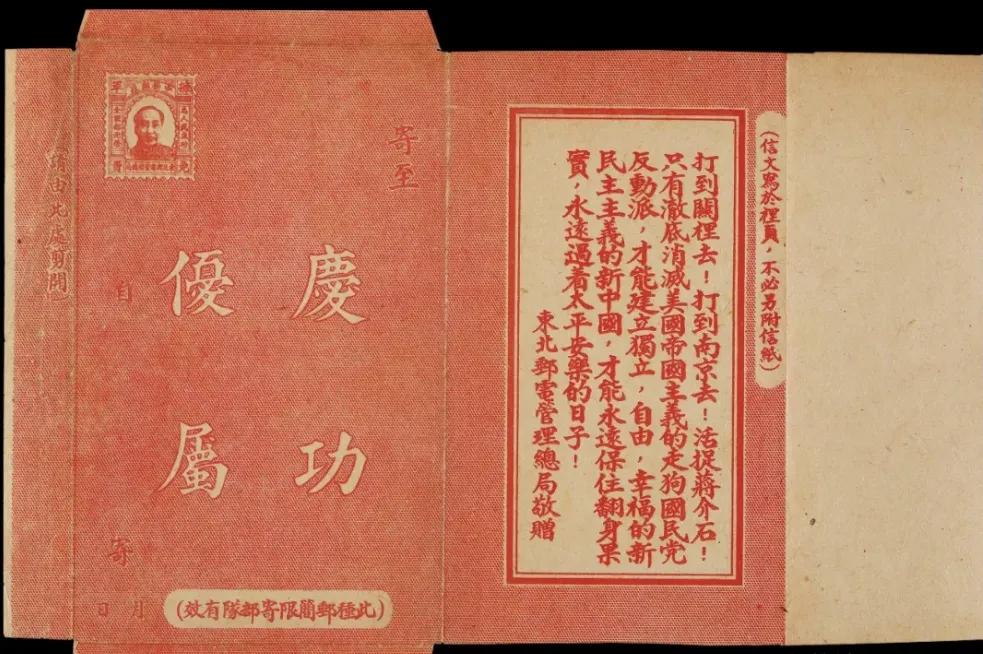 (信文寫於裡頁，不必另附信紙)
打到關裡去！打到南京去！活捉蔣介石！
只有澈底消滅美國帝國主義的走狗國民党
反動派，才能建立獨立，自由，幸福的新
民主主義的新中國，才能永遠保住翻身果
實，永遠過着太平安樂的日子！
東北郵電管理總局敬贈
寄至
慶功
優屬
自 寄
月 日
(此種郵簡限寄部隊有效)
請由此處剪開